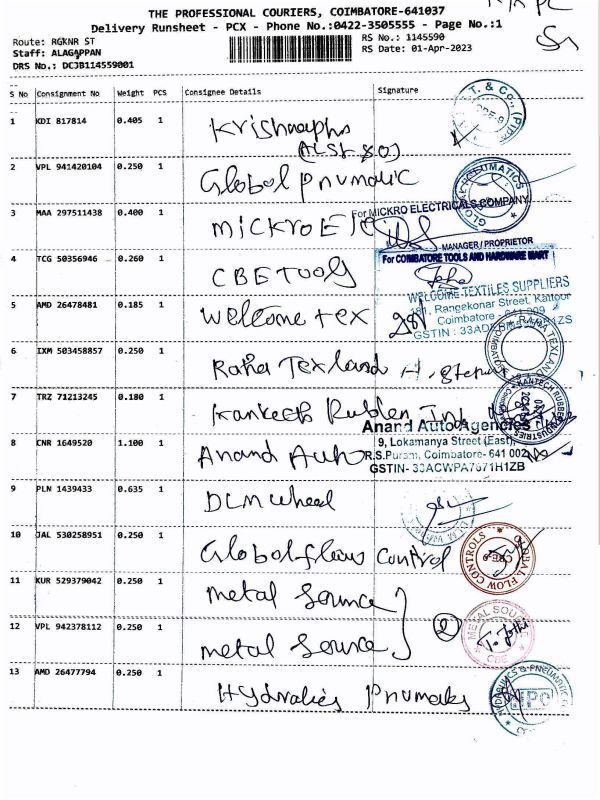 THE PROFESSIONAL COURIERS, COIMBATORE-641037
Delivery Runsheet - PCX - Phone No.:0422-3505555 - Page No.:1
Route: RGKNR ST
RS No.: 1145590
Staff: ALAGAPPAN
RS Date: 01-Apr-2023
DRS No.: DCJB114559001
S No Consignment No Weight PCS Consignee Details Signature
1 KDI 817814 0.405 1
T. & Co., (P)
2 VPL 941420104 0.250 1 Global Pnumatic
GLOBAL PNEUMATICS
3 MAA 297511438 0.400 1 Mickro Ele
For MICKRO ELECTRICALS COMPANY
MANAGER / PROPRIETOR
4 TCG 50356946 0.260 1 CBE Tools
For COIMBATORE TOOLS AND HARDWARE MART
5 AMD 26478481 0.185 1 Welcome tex
WELCOME TEXTILES SUPPLIERS
181, Rangekonar Street, Kattoor
Coimbatore - 641 009
GSTIN : 33AD
6 IXM 503458857 0.250 1 Raha Texland
RAHA TEXLAND
COIMBATORE
7 TRZ 71213245 0.180 1
KANTECH RUBBER INDUSTRIES
8 CNR 1649520 1.100 1 Anand Auto
Anand Auto Agencies
9, Lokamanya Street (East),
R.S.Puram, Coimbatore- 641 002
GSTIN- 33ACWPA7671H1ZB
9 PLN 1439433 0.635 1 DLM Wheel
10 JAL 530258951 0.250 1 Global flow Control
GLOBAL FLOW CONTROLS
CBE-9
11 KUR 529379042 0.250 1 metal Source
12 VPL 942378112 0.250 1 metal Source
2
METAL SOURCE
CBE
13 AMD 26477794 0.250 1 Hydralics Pnumatks
HYDRAULICS & PNEUMATIC
HPC